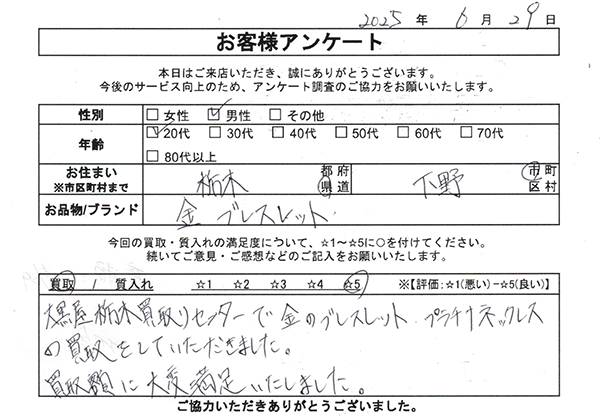 2025 年 6 月 29 日
お客様アンケート
本日はご来店いただき、誠にありがとうございます。
今後のサービス向上のため、アンケート調査のご協力をお願いいたします。
性別 □ 女性 ☑ 男性 □ その他
年齢 ☑ 20代 □ 30代 □ 40代 □ 50代 □ 60代 □ 70代
□ 80代以上
お住まい ※市区町村まで 栃木 都 府 県 道 下野 市 町 区 村
お品物/ブランド 金 ブレスレット
今回の買取・質入れの満足度について、☆1～☆5に○を付けてください。
続いてご意見・ご感想などのご記入をお願いいたします。
買取 / 質入れ ☆1 ☆2 ☆3 ☆4 ☆5 ※【評価:☆1(悪い)－☆5(良い)】
大黒屋 栃木買取りセンターで 金のブレスレット プラチナネックレス
の買取をしていただきました。
買取額に大変満足いたしました。
ご協力いただきありがとうございました。